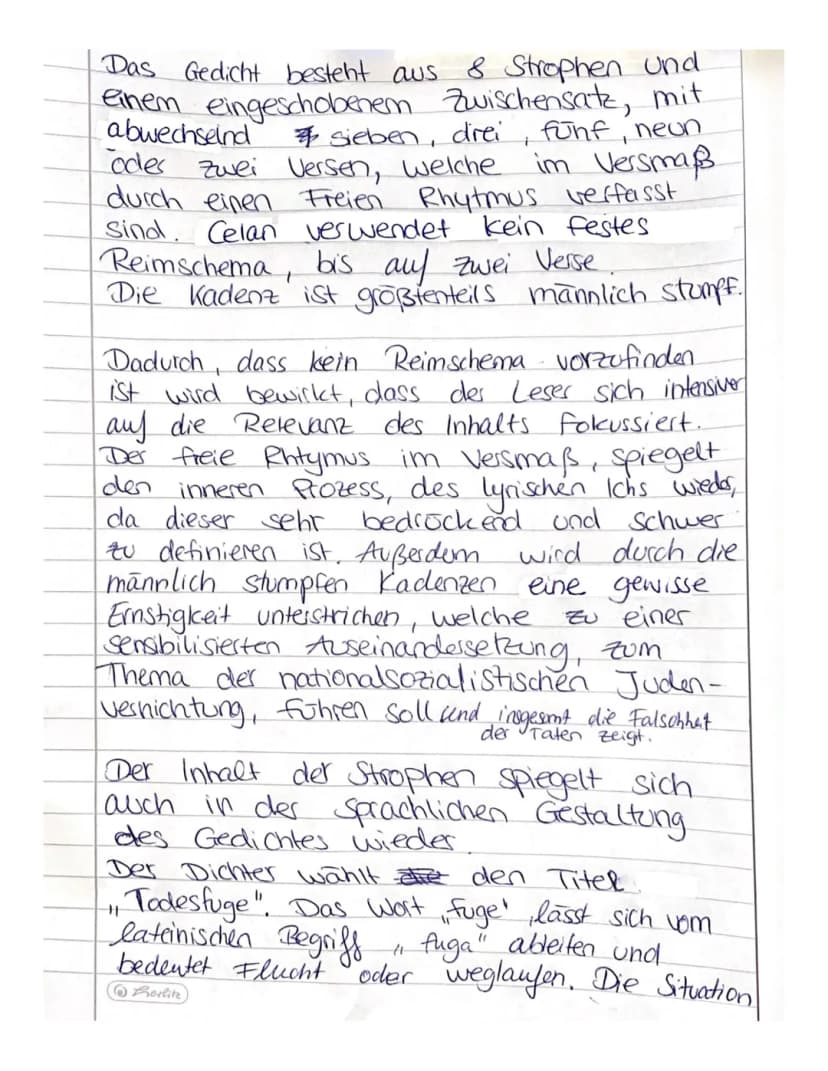 Das Gedicht besteht aus 8 Strophen und
einem eingeschobenem Zwischensatz, mit
abwechselnd sieben, drei, fünf, neun
oder zwei Versen, welche im Versmaß
durch einen Freien Rhytmus verfasst
sind. Celan verwendet kein festes
Reimschema, bis auf zwei Verse.
Die Kadenz ist größtenteils männlich stumpf.
Dadurch, dass kein Reimschema vorzufinden
ist wird bewirkt, dass der Leser sich intensiver
auf die Relevanz des Inhalts fokussiert.
Der freie Rhtymus im Versmaß, spiegelt
den inneren Prozess, des lyrischen Ichs wieder,
da dieser sehr bedrückend und schwer
zu definieren ist. Außerdem wird durch die
männlich stumpfen Kadenzen eine gewisse
Ernstigkeit unterstrichen, welche zu einer
sensibilisierten Auseinandersetzung, zum
Thema der nationalsozialistischen Juden-
vernichtung, führen soll und insgesamt die Falschheit
der Taten zeigt.
Der Inhalt der Strophen spiegelt sich
auch in der sprachlichen Gestaltung
des Gedichtes wieder.
Der Dichter wählt den Titel
„Todesfuge". Das Wort „fuge" lässt sich vom
lateinischen Begriff „fuga" ableiten und
bedeutet Flucht oder weglaufen. Die Situation
@ Berlitz